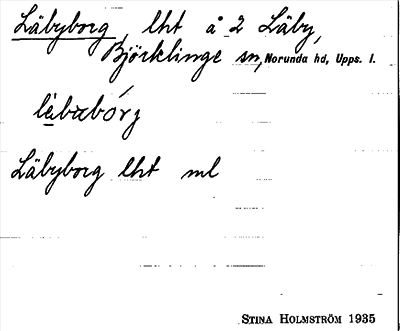 Läbyborg, lht å 2 Läby,
Björklinge sn, Norunda hd, Upps. l.
lèbᵫbórg
Läbyborg lht ml
STINA HOLMSTRÖM 1935